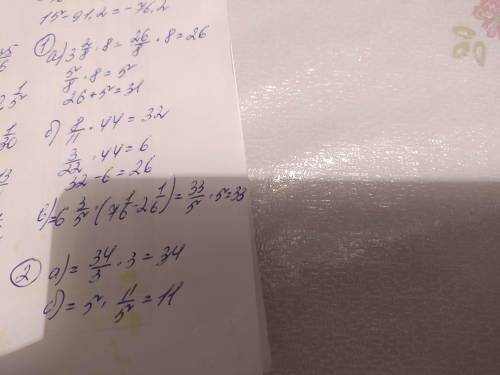 15-91,2=-76,2
① а) 3 2/8 · 8 = 26/8 · 8 = 26
5/8 · 8 = 5
26+5=31
б) 8/11 · 44 = 32
3/22 · 44 = 6
32-6=26
в) =6 3/5 · (7 1/6 - 2 1/6) = 33/5 · 5 = 33
② а) = 34/3 · 3 = 34
б) = 5 · 11/5 = 11